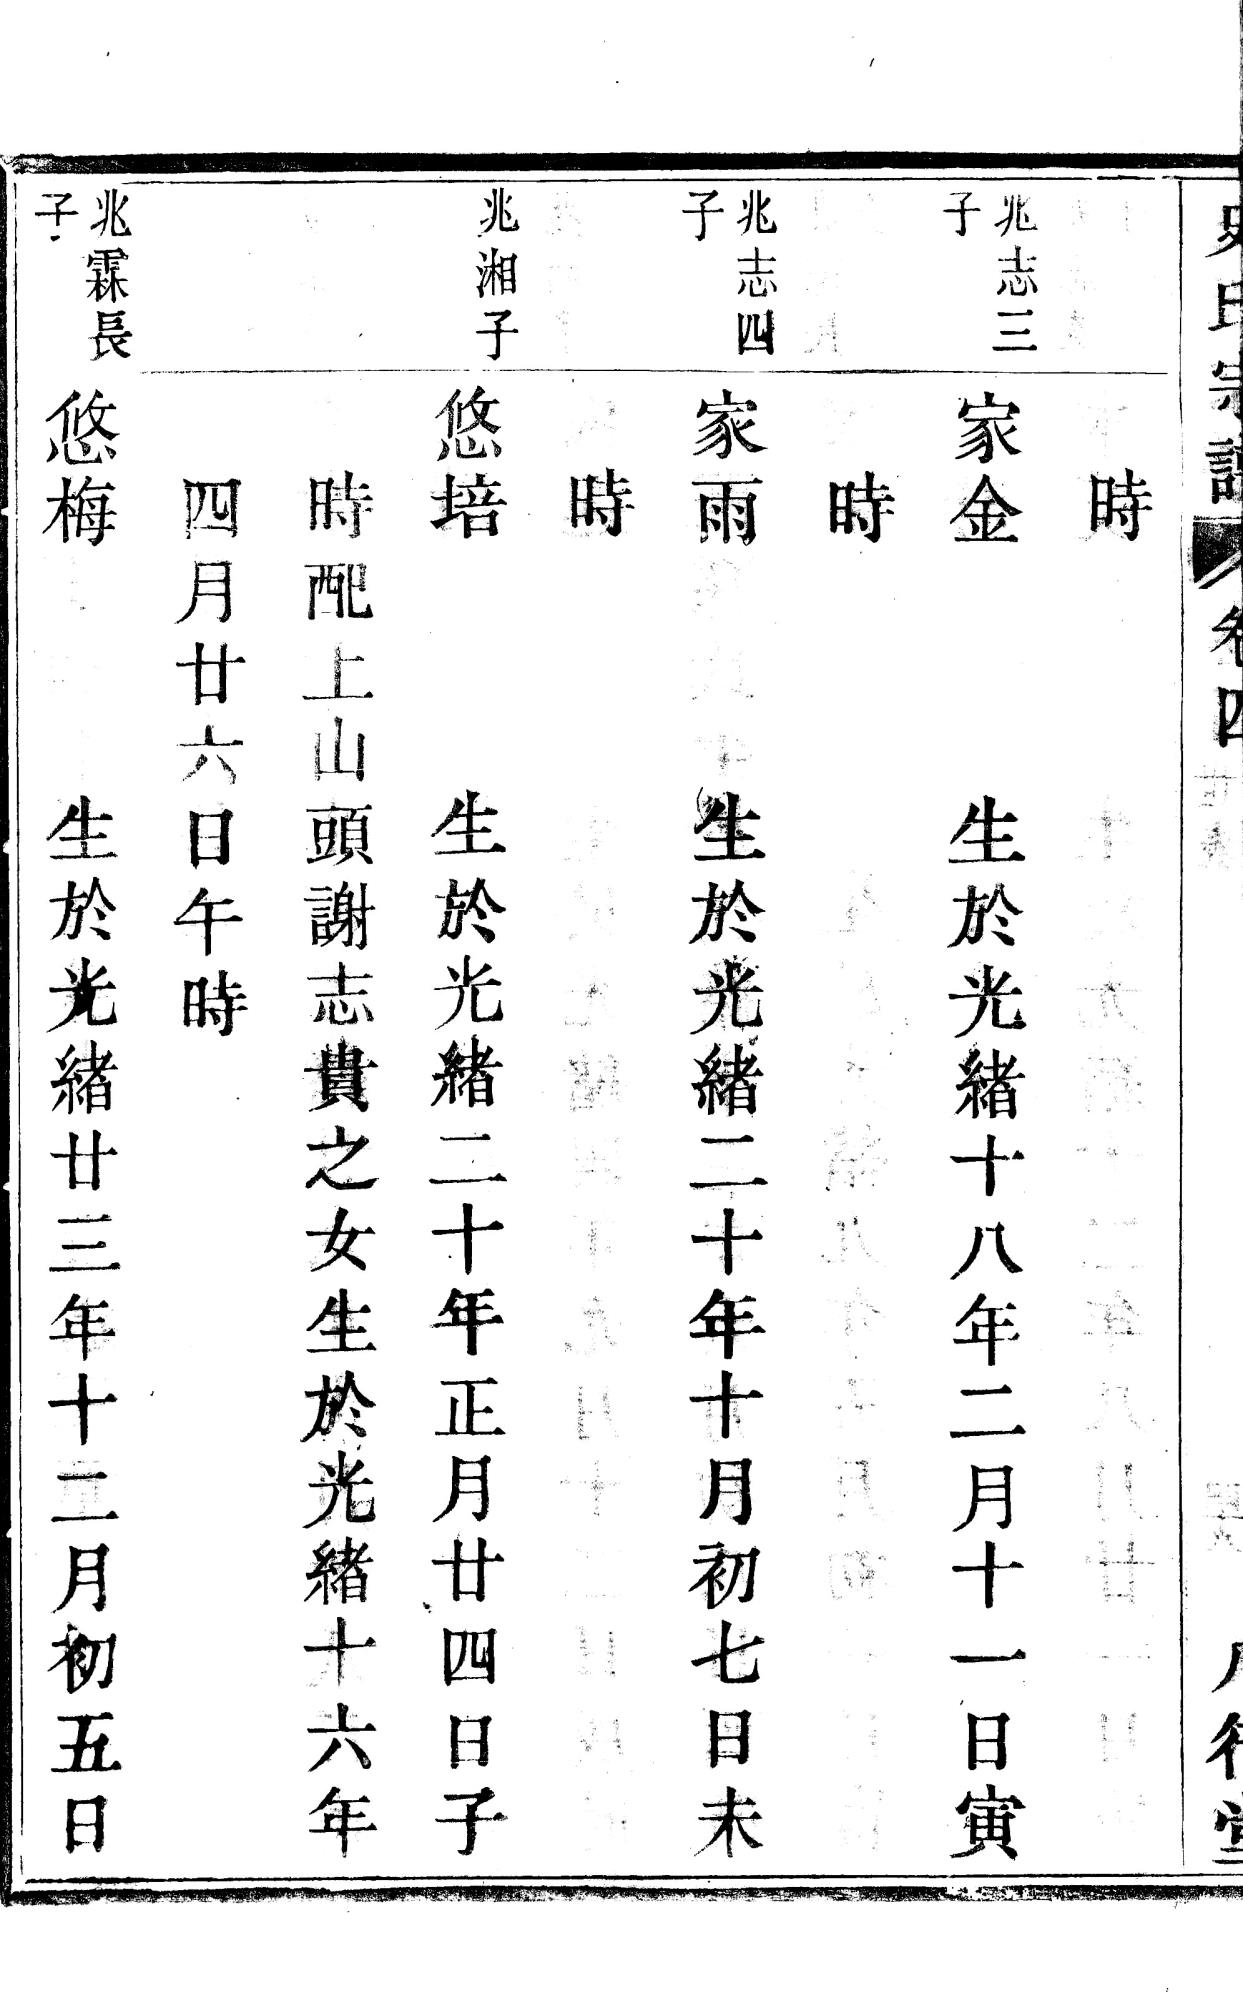 氏宗譜 卷四
時
兆志三子
家金 生於光緒十八年二月十一日寅
時
兆志四子
家雨 生於光緒二十年十月初七日未
時
兆湘子
悠培 生於光緒二十年正月廿四日子
時配上山頭謝志貴之女生於光緒十六年
四月廿六日午時
兆霖長子
悠梅 生於光緒廿三年十二月初五日